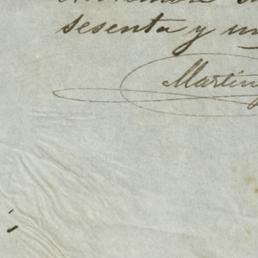 sesenta y un
Martin